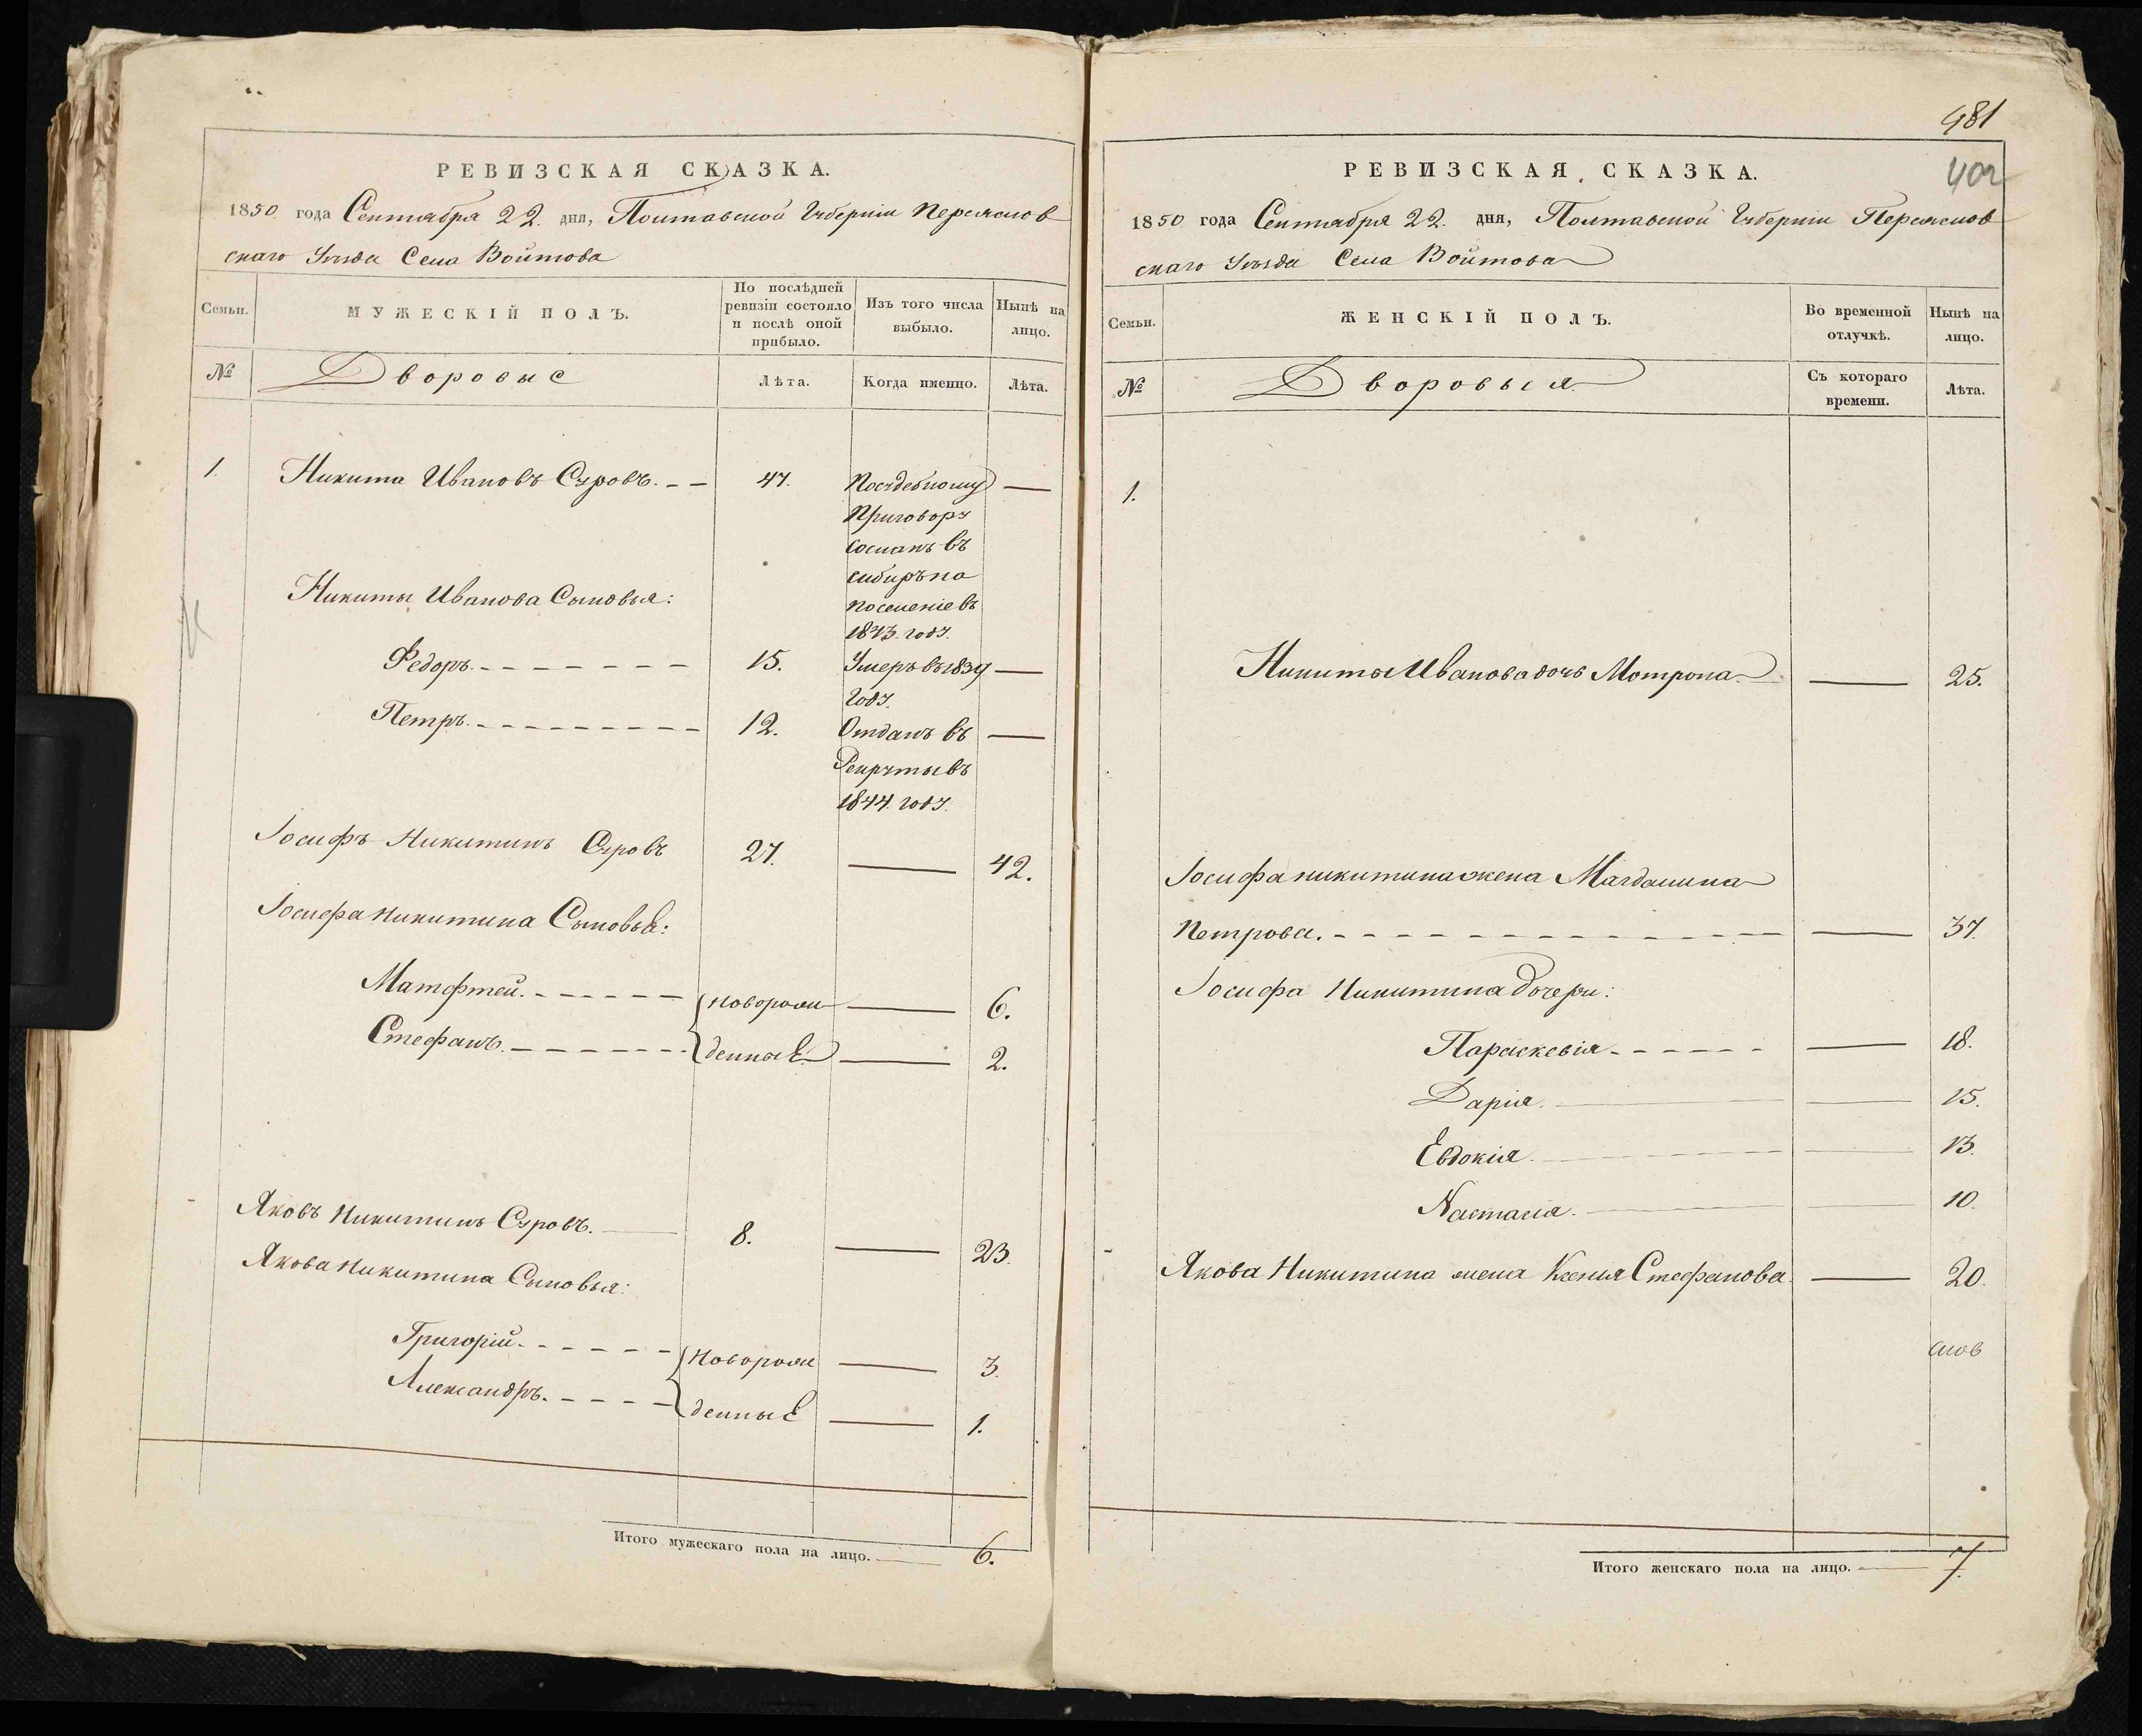 РЕВИЗСКАЯ СКАЗКА.
1850 года Сентября 22. дня, Полтавской Губерніи Переяслов
скаго Уѣзда Села Войтова
Семьи.
МУЖЕСКІЙ ПОЛЪ.
По послѣдней
ревизіи состояло
и послѣ оной
прибыло.
Изъ того числа
выбыло.
Нынѣ на
лицо.
№
Дворовые
Лѣта.
Когда именно.
Лѣта.
1. Никита Ивановъ Суровъ. 47. По судебному —
Приговору
сосланъ въ
сибирь на
поселеніе въ
1843. году.
Никиты Иванова Сыновья:
Федоръ. 15. Умеръ въ 1839 —
году.
Петръ. 12. Отданъ въ —
Рекруты въ
1844. году.
Іосифъ Никитинъ Суровъ 27. — 42.
Іосифа Никитина Сыновья:
Матфтей. новорож — 6.
Стефанъ. денные — 2.
Яковъ Никитинъ Суровъ. 8. — 23.
Якова Никитина Сыновья:
Григорій. Новорож — 3.
Александръ. денные — 1.
Итого мужескаго пола на лицо. 6.
481
402
РЕВИЗСКАЯ СКАЗКА.
1850 года Сентября 22. дня, Полтавской Губерніи Переяслов
скаго Уѣзда Села Войтова
Семьи.
ЖЕНСКІЙ ПОЛЪ.
Во временной
отлучкѣ.
Нынѣ на
лицо.
№
Дворовыя.
Съ котораго
времени.
Лѣта.
1.
Никиты Иванова дочь Мотрона. — 25.
Іосифа никитина жена Магдалина
Петрова. — 37.
Іосифа Никитина дочери:
Параскевія — 18.
Дарія. — 15.
Евдокія. — 13.
Настасія. — 10.
Якова Никитина жена Ксенія Стефанова. — 20.
Итого женскаго пола на лицо. 7.